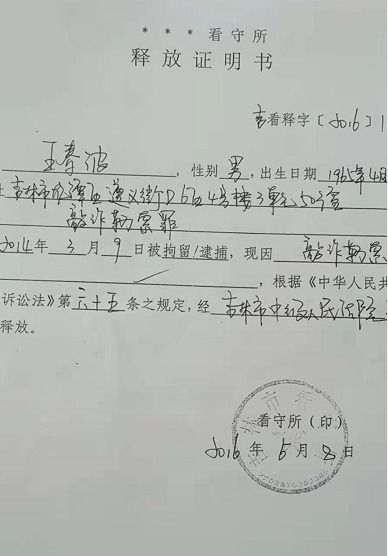 * * * 看守所
释放证明书
吉看释字〔2016〕1
王春波，性别男，出生日期1965年4月
吉林市龙潭区遵义街D6区4号楼3单元50号室
敲诈勒索罪
2014年3月9日被拘留/逮捕，现因敲诈勒索
，根据《中华人民共
诉讼法》第六十五条之规定，经吉林市中级人民法院
释放。
看守所（印）
2016年5月8日